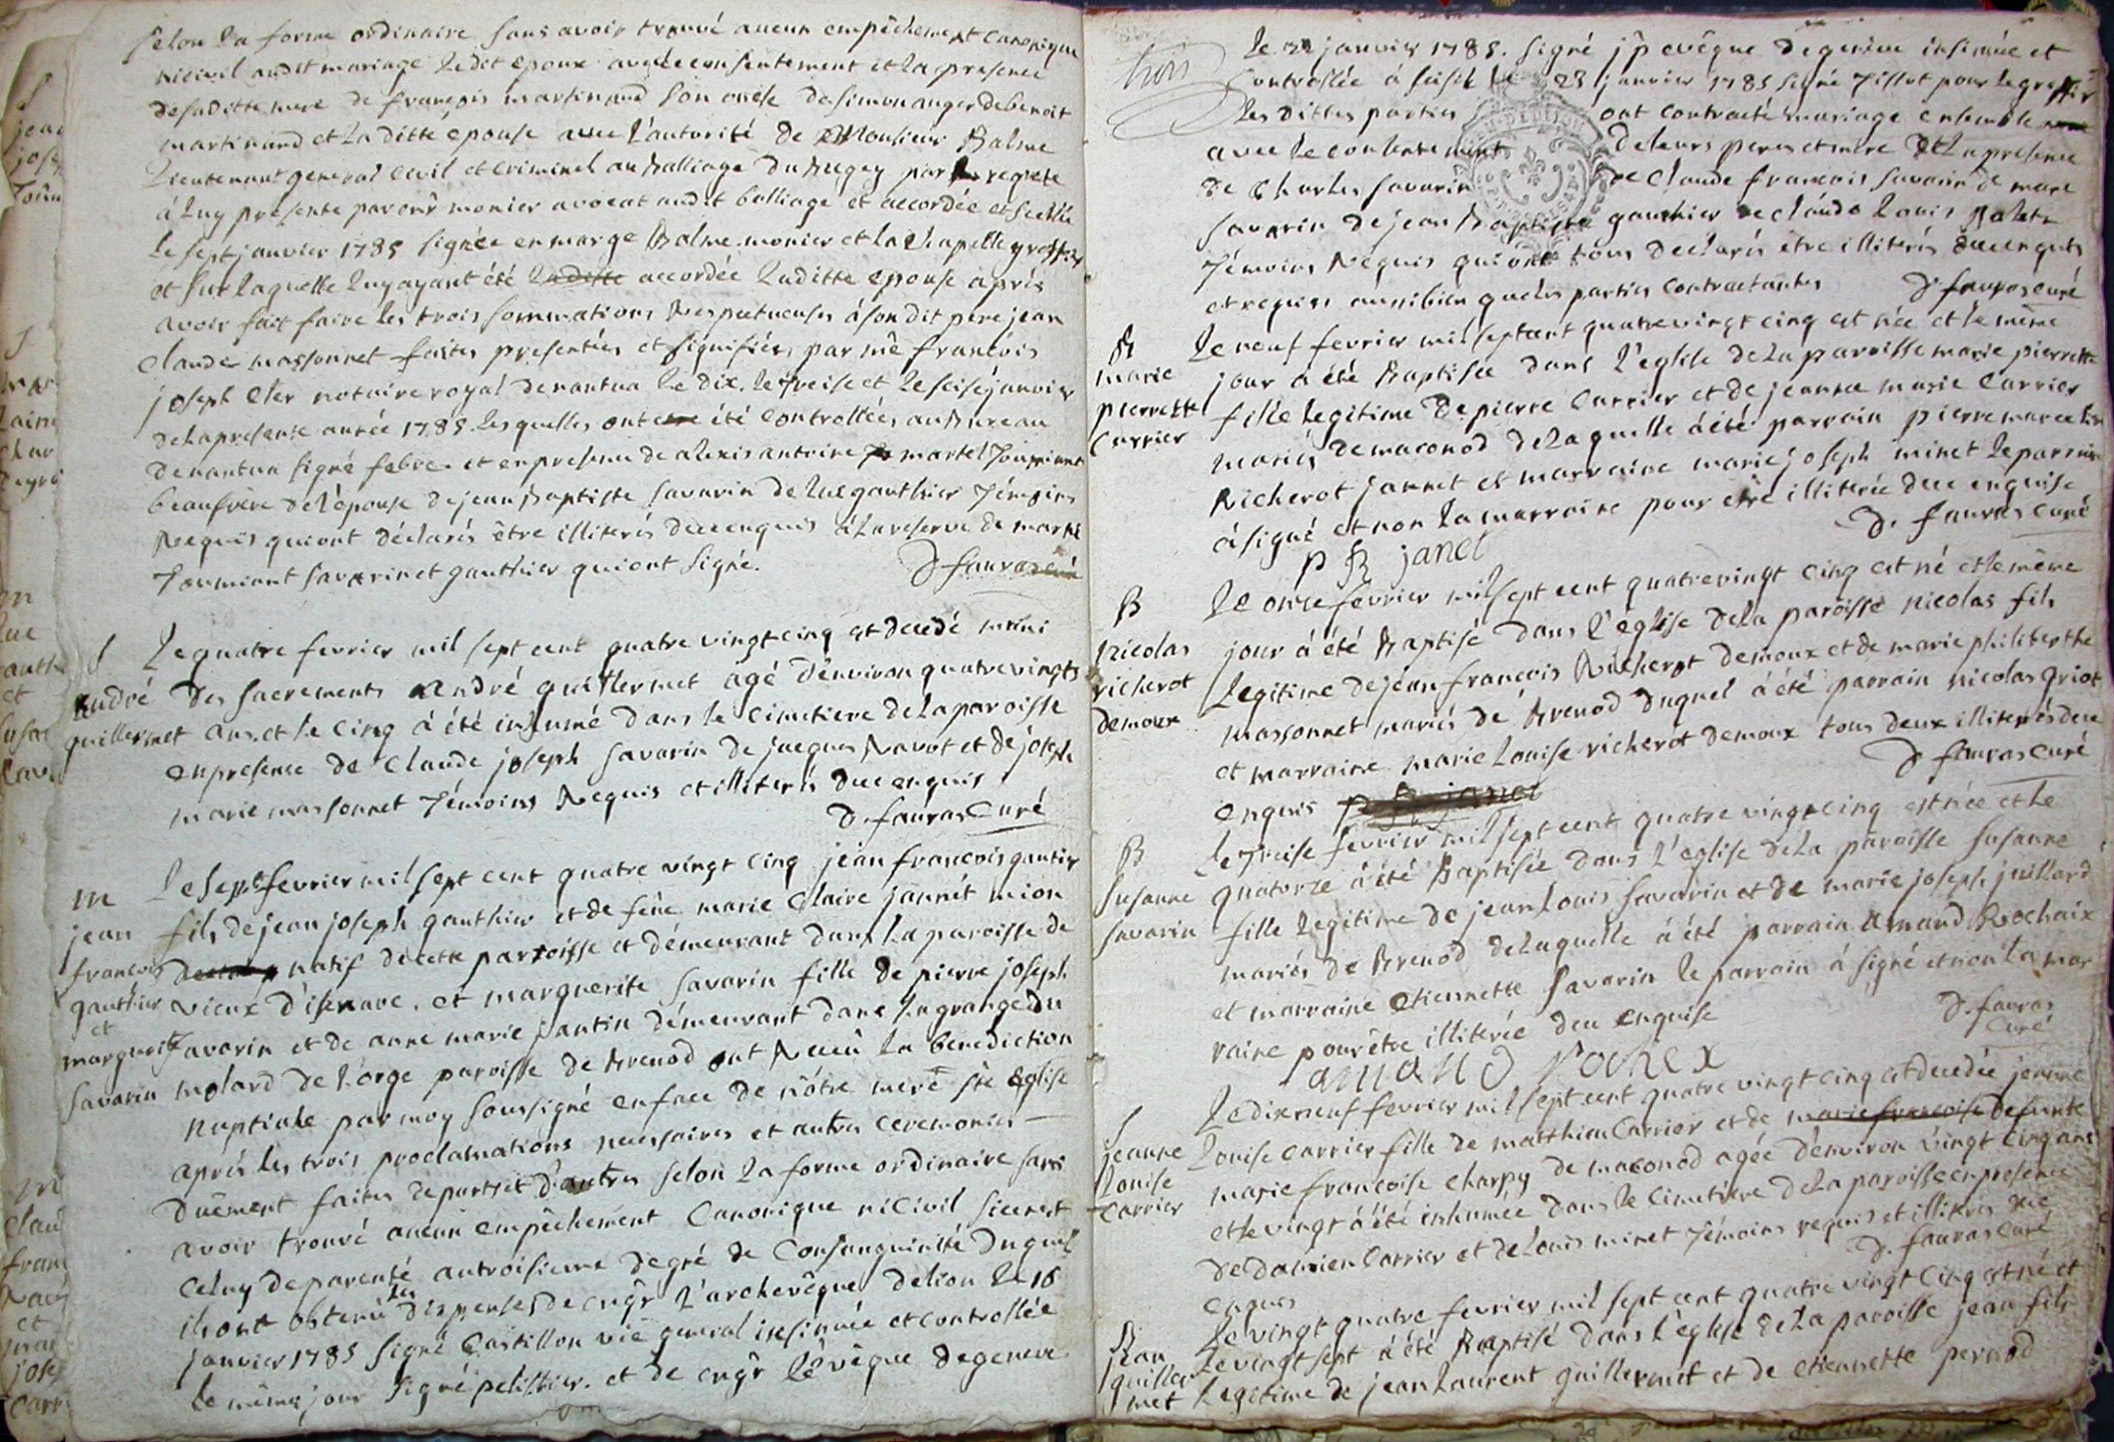 selon la forme ordinaire sans avoir trouvé aucun empêchement canonique
ni civil audit mariage le dit epoux avec le consentement et la presence
de saditte mere de françois martinand son oncle de simon auger de benoit
martinand et la ditte epouse avec l'autorité de Monsieur Balme
Lieutenant general civil et criminel au Balliage du Bugey par requete
à luy présente par monier avocat audit balliage et accordée et scellée
le sept janvier 1785 signée en marge Balme monier et la chapelle greffier
et sur laquelle luy ayant été laditte accordée laditte epouse après
avoir fait faire les trois sommations Respectueuses à son dit pere jean
Claude massonnet faites presentées et signifiées par me françois
joseph cler notaire royal de nantua le dix, le treise et le seise janvier
de la presente année 1785. les quelles ont été controllées au Bureau
de nantua signé febre. et en presence de alexis antoine martel
beaufrère de l'épouse de jean Baptiste savarin de luc gauthier témoins
Requis qui ont déclarés être illiterés de ce enquis à la reserve de martel
savarin et gauthier qui ont signé.
D fauras curé
S
andré
guillermet
Le quatre fevrier mil sept cent quatre vingt cinq est decedé muni
des sacrements André guillermet agé d'environ quatre vingts
ans. et le cinq à été inhumé dans le cimetiere de la paroisse
en presence de Claude joseph savarin de jacques Navot et de joseph
marie massonnet témoins Requis et illiterés de ce enquis
D. fauras Curé
m
jean
francois
gauthier
et
marguerite
savarin
Le sept fevrier mil sept cent quatre vingt cinq jean francois gautier
fils de jean joseph gauthier et de feüe marie Claire jannét mion
natif de cette parroisse et démeurant dans la paroisse de
vieux d'isenave. et marguerite savarin fille de pierre joseph
savarin et de anne marie jantin démeurant dans la grange du
molard de l'orge paroisse de Brenod ont Receü la benediction
nuptiale par moy soussigné en face de nôtre mere ste eglise
après les trois proclamations necessaires et autres ceremonies
duëment faites de part et d'autres selon la forme ordinaire sans
avoir trouvé aucun empêchement Canonique ni Civil si ce n'est
celuy de parenté au troisieme degré de Consanguinité duquel
ils ont obtenu les dispenses de mgr l'archevêque de lion le 18
janvier 1785 signé Castillon vic general insinuée et controllée
le même jour signé pelissier. et de mgr l'évêque de geneve
le 22 janvier 1785. signé jp evêque de genève insinuée et
Controllée à seissel le 23 janvier 1785 signé pour le greffier
les dittes parties ont contracté mariage ensemble
avec le consentement de leurs peres et mère et la presence
de Charles savarin de Claude francois savarin de marc
savarin de jean Baptiste gauthier de claude Louis
témoins Requis qui ont tous declarés être illiterés de ce enquis
et requis aussi bien que les parties contractantes
D. fauras curé
B
marie
pierrette
Carrier
Le neuf fevrier mil sept cent quatre vingt cinq est née et le même
jour à été Baptisée dans l'eglise de la paroisse marie pierrette
fille legitime de pierre Carrier et de jeanne marie Carrier
mariés de maconod de laquelle à été parrain pierre marcelin
Richerot jannet et marraine marie joseph minet le parrain
à signé et non la marraine pour être illiterée de ce enquise
D. fauras curé
p R janet
B
nicolas
richerot
demoux
Le onze fevrier mil sept cent quatre vingt cinq est né et le même
jour à été Baptisé dans l'église de la paroisse nicolas fils
Legitime de jean francois Richerot demoux et de marie philiberthe
massonnet mariés de Brenod duquel à été parrain nicolas griot
et marraine marie Louise richerot demoux tous deux illiterés de ce
enquis p R janet
D fauras Curé
B
susanne
savarin
Le treise fevrier mil sept cent quatre vingt cinq est née et le
quatorze à été Baptisée dans l'eglise de la paroisse susanne
fille legitime de jean Louis savarin et de marie joseph juillard
mariés de Brenod de laquelle à été parrain Amand Rochaix
et marraine etiennette savarin le parrain à signé et non la mar
raine pour être illiterée de ce enquise
D. fauras
Curé
amand rochex
S
jeanne
Louise
carrier
Le dix neuf fevrier mil sept cent quatre vingt cinq est decedée jeanne
Louise carrier fille de matthieu Carrier et de marie francoise defunte
marie francoise charpy de maconod agée d'environ vingt cinq ans
et le vingt à été inhumée dans le cimetiere de la paroisse en presence
de damien Carrier et de Louis minet témoins requis et illiterés de ce
enquis
D. fauras Curé
B
jean
guiller
met
Le vingt quatre fevrier mil sept cent quatre vingt cinq est né et
le vingt sept à été Baptisé dans l'église de la paroisse jean fils
Legitime de jean Laurent guillermet et de etiennette pernod